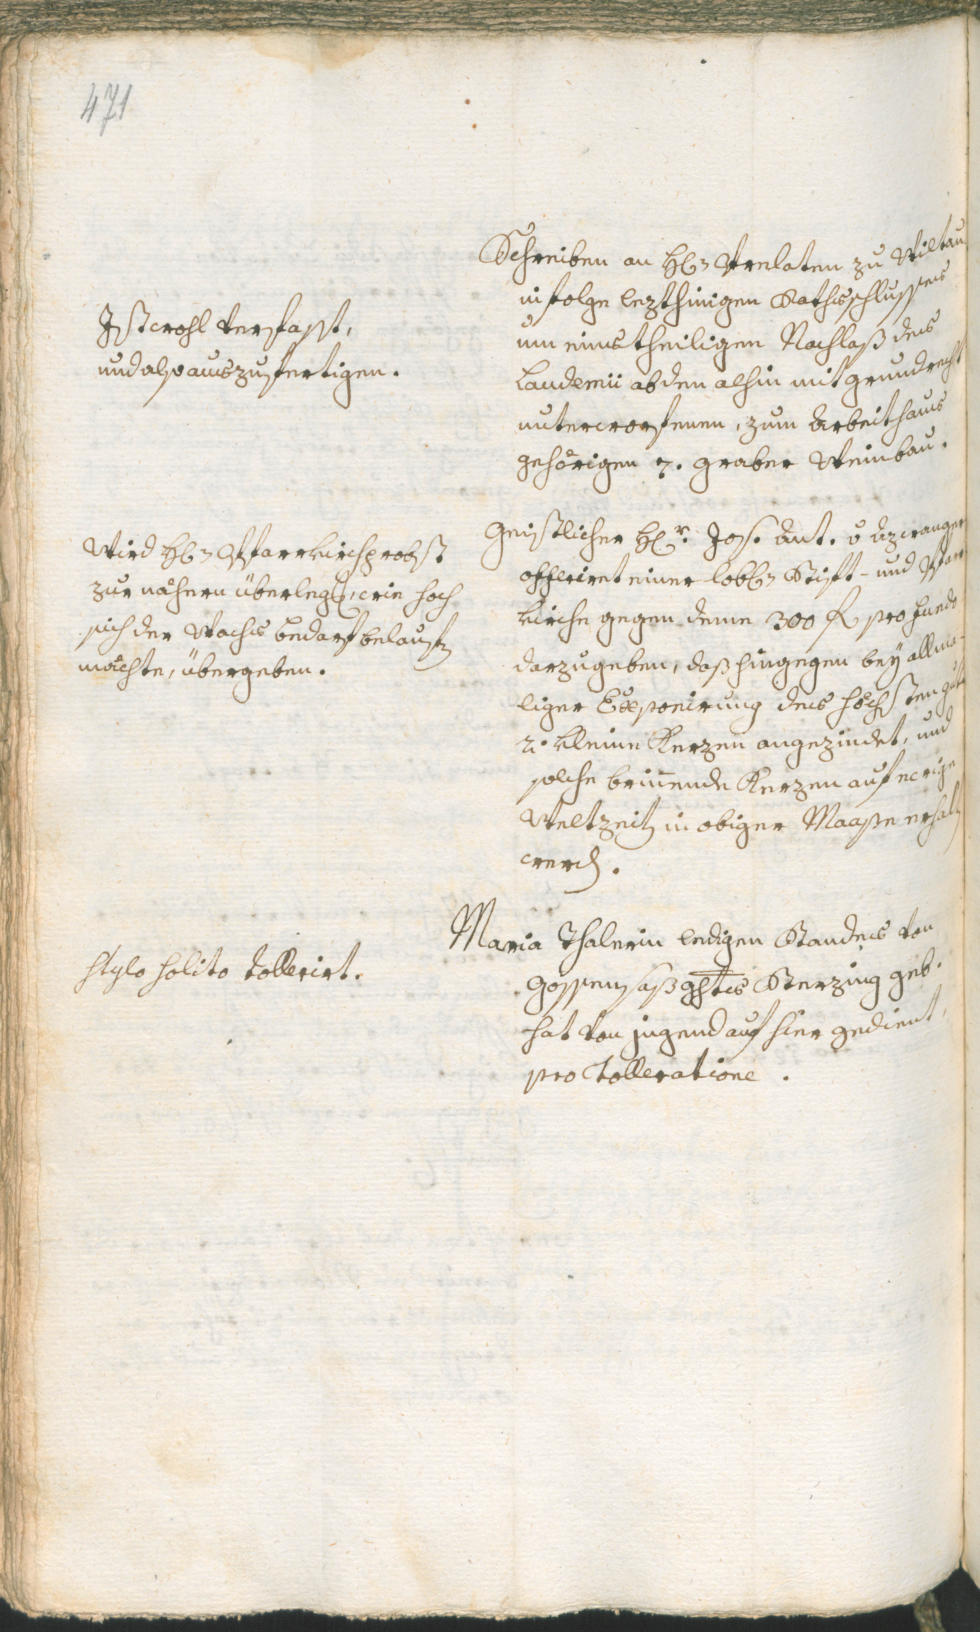 471
Schreiben an H: Prelaten zu Wiltau
in folge lezthinigen Rathsschlusses
um eines theiligen Nachlaß des
Laudemii ab den alhin mit grundrecht
unterworfenen, zum Arbeithaus
gehörigen 7. graber Weinbau.
Ist wohl verfasst,
und also auszufertigen.
Geistlicher H: Jos. Ant. v Azwanger
offeriret einer lobl: Stift- und Pfarr
Kirche gegen deme 300 f pro fundo
darzugeben, daß hingegen bey allma-
liger Exponirung des höchsten gut
2. kleine Kerzen angezindet, und
solche brinende Kerzen auf ewige
Weltzeit in obiger Maaße erhalt
werd.
Wird H: Pfarrkirchprobst
zur nähern überleg:, wie hoch
sich der Wachs bedarf belauf
möchte, übergeben.
Maria Thalerin ledigen Standes von
Gossensaß ghts Sterzing geb.
hat von jugend auf hier gedient,
pro Tolleratione.
stylo solito tollerirt.